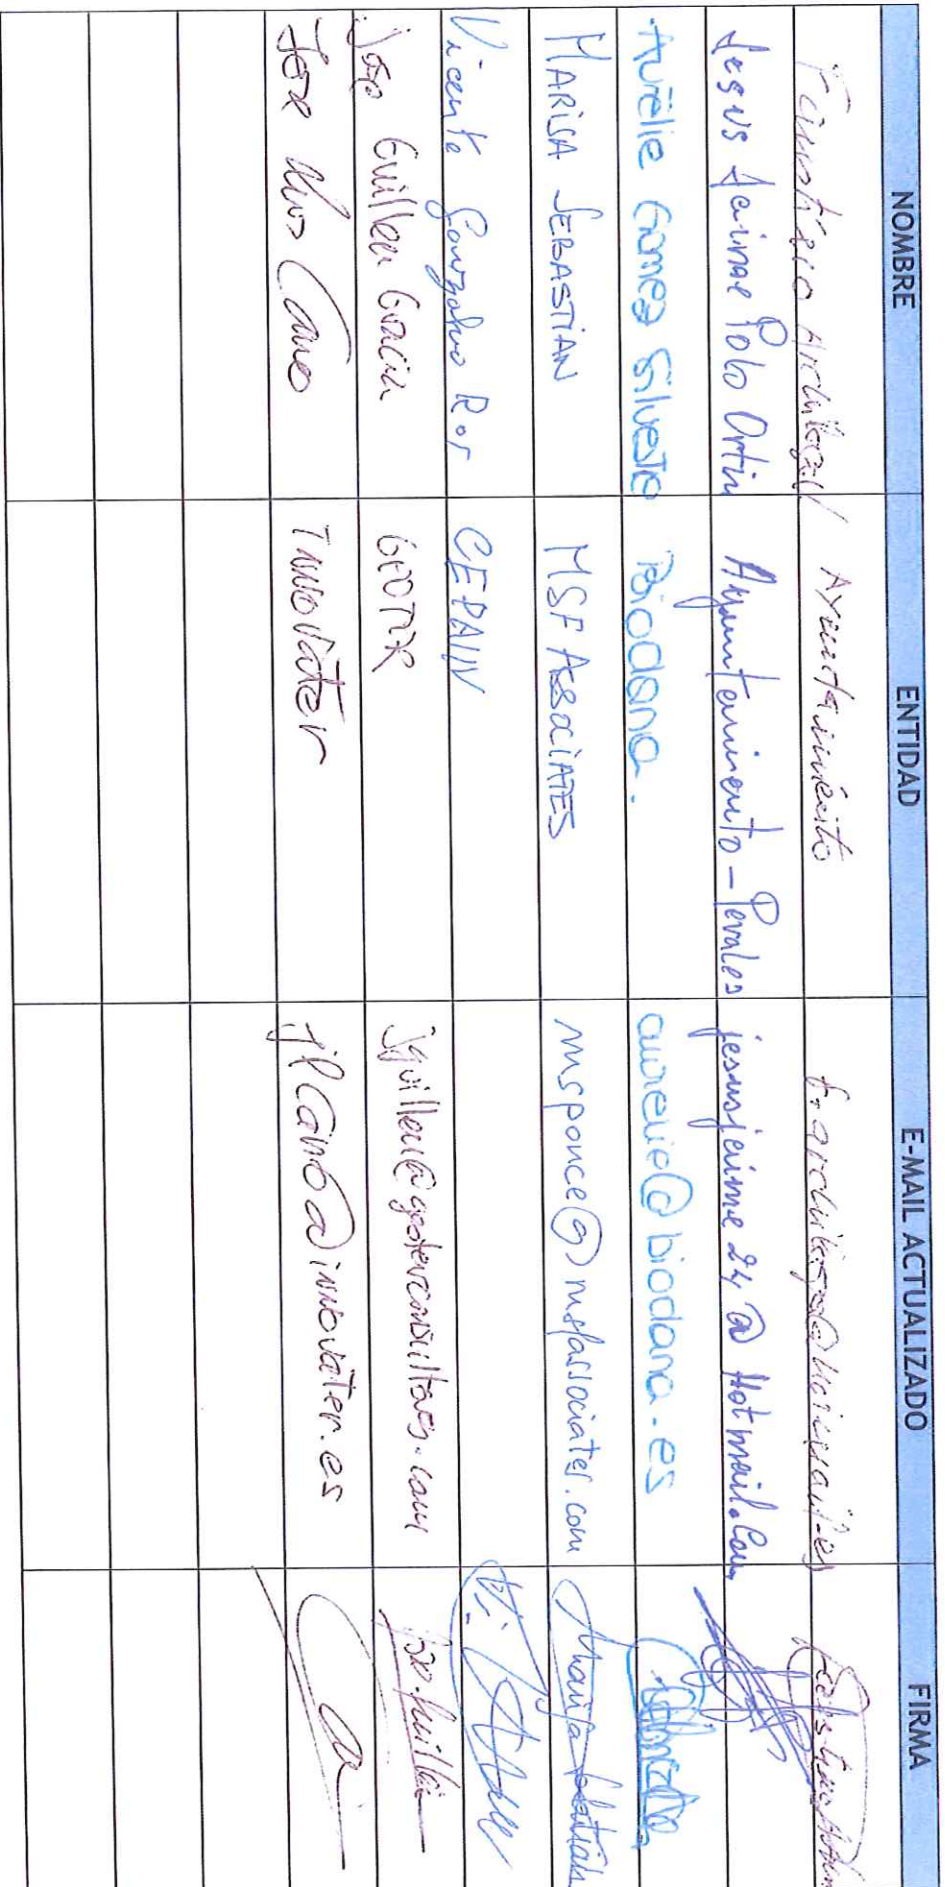 NOMBRE ENTIDAD E-MAIL ACTUALIZADO FIRMA
Ayuntamiento
Jesus Jaime Polo Ortin Ayuntamiento - Perales jesusjaime24@Hotmail.com
Aurélie Gomez Silvestre Biodana. aurelie@biodana.es
MARISA SEBASTIAN MSF ASSOCIATES msponce@msfassociates.com Marisa Sebastián
Vicente Gonzalvo Ros CEPAIN
Jose Guillen Gracia GEOTER jguillen@geoterconsultores.com Jose Guillén
Jose Luis Cano Innovater jlcano@innovater.es